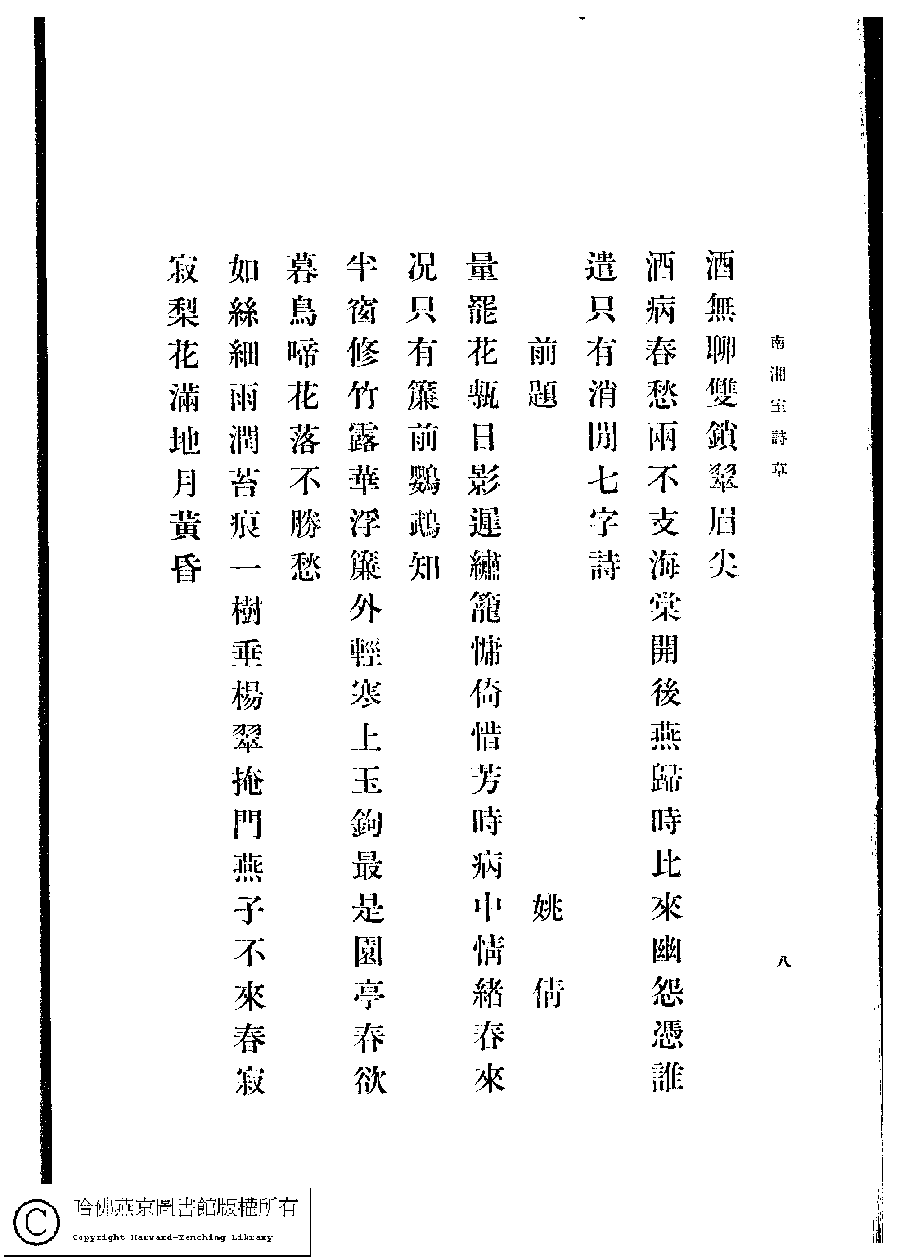 南湘室詩草
八
酒無聊雙鎖翠眉尖
酒病春愁兩不支海棠開後燕歸時比來幽怨憑誰
遣只有消閒七字詩
前題 姚倩
量罷花瓻日影遲繡籠慵倚惜芳時病中情緒春來
况只有簾前鸚鵡知
半窗修竹露華浮簾外輕寒上玉鉤最是園亭春欲
暮鳥啼花落不勝愁
如絲細雨潤苔痕一樹垂楊翠掩門燕子不來春寂
寂梨花滿地月黃昏
哈佛燕京圖書館版權所有
Copyright Harvard-Yenching Library